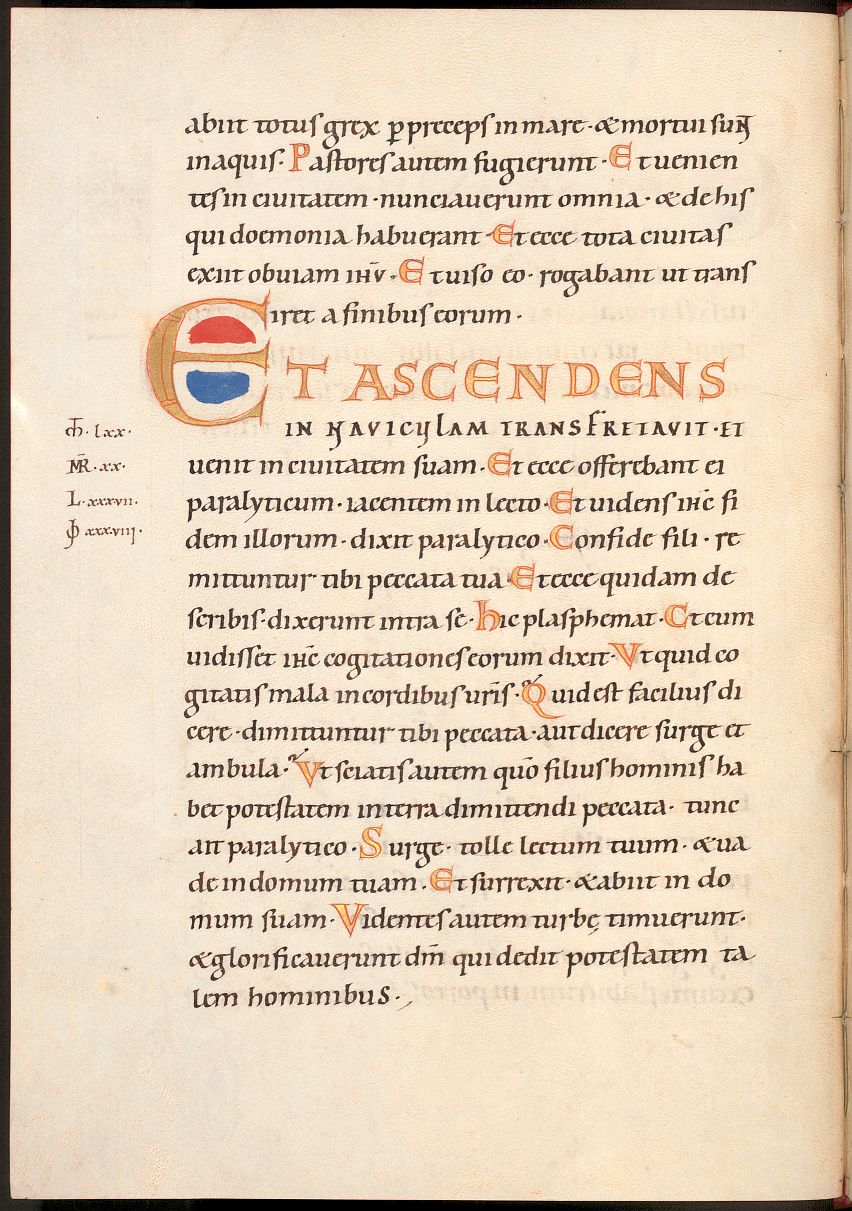 abiit totus grex p̱ preceps in mare · & mortui sunt
in aquis · Pastores autem fugierunt · Et uenien
tes in ciuitatem · nunciauerunt omnia · & de his
qui doemonia habuerant · Et ecce tota ciuitas
exiit obuiam ihv̄ · Et uiso eo · rogabant ut trans
iret a finibus eorum ·
ET ASCENDENS
IN NAVICULAM TRANSFRETAVIT · ET
uenit in ciuitatem suam · Et ecce offerebant ei
paralyticum · iacentem in lecto · Et uidens ihc̄ fi
dem illorum · dixit paralytico · Confide fili · re
mittuntur tibi peccata tua · Et ecce quidam de
scribis · dixerunt intra se · hic plasphemat · Et cum
uidisset ihc̄ cogitationes eorum dixit · Vt quid co
gitatis mala in cordibus ur̄is · Quid est facilius di
cere · dimittuntur tibi peccata · aut dicere surge et
ambula · Vt sciatis autem quō filius hominis ha
bet potestatem in terra dimittendi peccata · tunc
ait paralytico · Surge · tolle lectum tuum · & ua
de in domum tuam · Et surrexit · & abiit in do
mum suam · Videntes autem turbę timuerunt ·
& glorificauerunt dm̄ qui dedit potestatem ta
lem hominibus ·
m̄ · lxx ·
MR̄ · xx ·
L · xxxvii ·
xxxviii ·